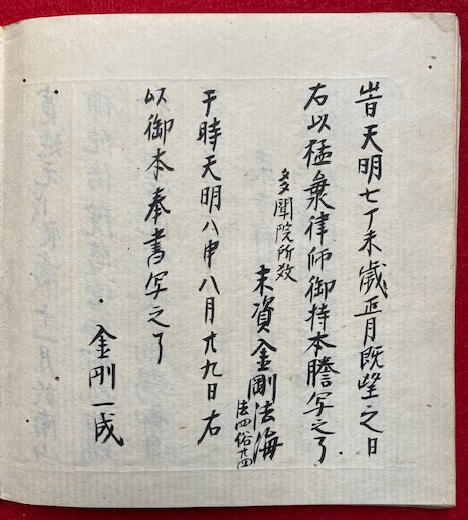 旹天明七丁未歳正月既望之日
右以猛彙律師御持本謄写之了
多聞院所效
末資金剛法海
法四俗廾四
于時天明八申八月廾九日右
以御本奉書写之了
金剛一成